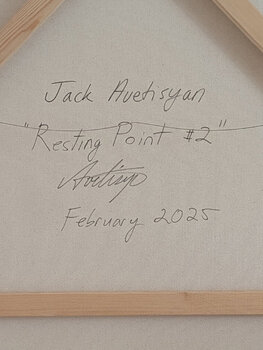 Jack Avetisyan
"Resting Point #2"
Avetisyan
February 2025